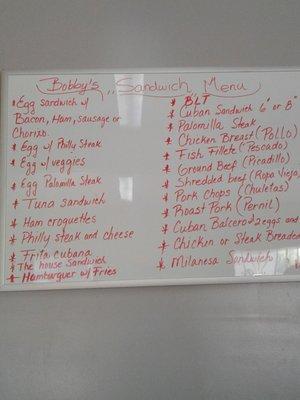 Bobby's ,, Sandwich ,, Menu
* Egg sandwich w/
Bacon, Ham, sausage or
Chorizo.
* Egg w/ Philly Steak
* Egg w/ veggies
* Egg Palomilla Steak
* Tuna sandwich
* Ham croquettes
* Philly steak and cheese
* Frita cubana
* The house Sandwich
* Hamburguer w/ Fries
* BLT
* Cuban Sandwich 6" or 8"
* Palomilla Steak
* Chicken Breast (Pollo)
* Fish Fillete (Pescado)
* Ground Beef (Picadillo)
* Shredded beef (Ropa Vieja)
* Pork Chops (Chuletas)
* Roast Pork (Pernil)
* Cuban Balcero 2 eggs and
* Chicken or Steak Breaded
* Milanesa Sandwich